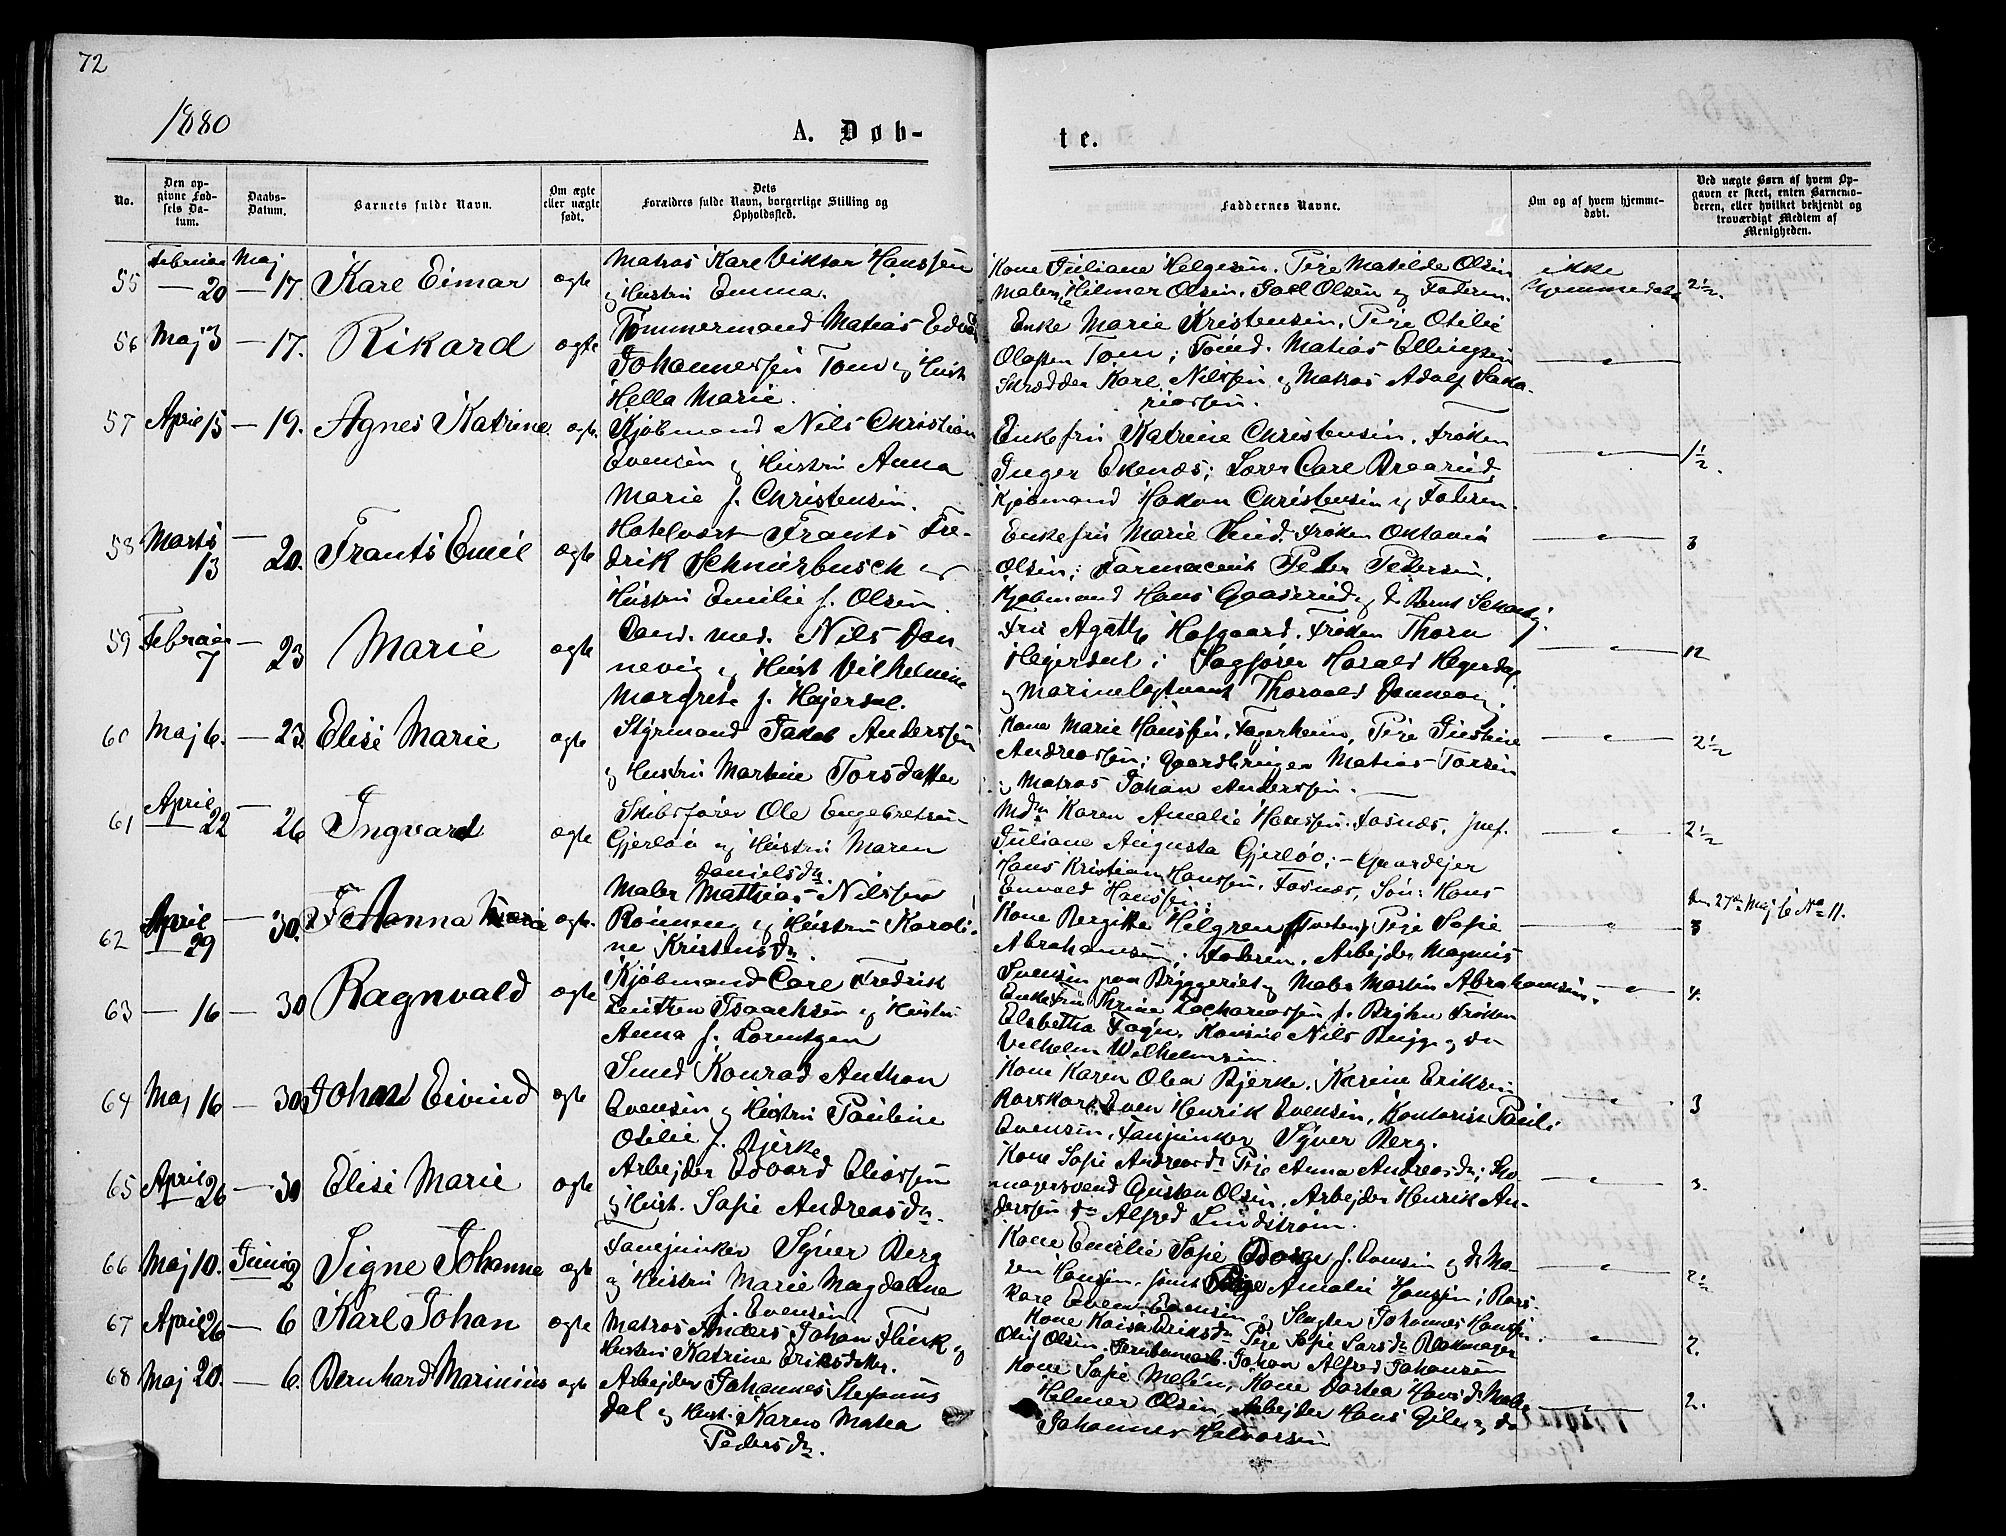 72
1880
A. Døb-
te.
No.
Den op-
givne Fød-
sels Da-
tum.
Daabs-
Datum.
Barnets fulde Navn.
Om ægte
eller uægte
født.
Dets
Forældres fulde Navn, borgerlige Stilling og
Opholdssted.
Faddernes Navne.
Om og af hvem hjemme-
døbt.
Ved uægte Børn af hvem Op-
gaven er skeet, enten Barnemo-
deren, eller hvilket bekjendt og
troværdigt Medlem af
Menigheden.
55 Februar 20 Maj 17. Karl Eimar ægte
Matros Karl Viktor Hanssen
og Hustru Emma.
Kone Juliane Helgesen. Pige Matilde Olsen
Maler Hilmer Olsen. Joel Olsen og Faderen.
ikke
hjemmedøbt
2½.
56 Maj 3 — 17. Rikard ægte
Tømmermand Matias Edvard
Johannessen Tom og Hust
Hella Marie.
Enke Marie Kristensen. Pige Otilie
Olassen Tom; Matias Ellingsen
Skrædder Karl Nilssen og Matros Adolf Saka-
riassen.
57 April 15 — 19. Agnes Katrine ægte.
Kjøbmand Nils Christian
Evensen og Hustru Anna
Marie f. Christensen.
Enkefru Katrine Christensen. Frøken
Inger Ekenæs; Lærer Carl Braarud
Kjøbmand Hakon Christensen og Faderen.
1½.
58 Marts 13 — 20. Frants Emil ægte
Hotelvært Frants Fre-
drik Schnierbusch og
Hustru Emilie f. Olsen.
Enkefru Marie Lund. Frøken Oktavia
Olsen; Farmaceut Peter Pedersen.
Kjøbmand Hans Gaaserud og do Bernt
3
59 Februar 7 — 23 Marie ægte
Cand. med. Nils Dan-
nevig og Hust Vilhelmine
Margrete f. Hejerdal.
Fru Agathe Hofgaard. Frøken Thora
Hejerdal; Sagfører Harald Hejerdal
og Marineløjtnant Thorvald Dannevig.
12
60 Maj 6. — 23 Elise Marie ægte
Styrmand Jakob Anderssen
og Hustru Martine Torsdatter
Kone Marie Hanssen, Fagerheim, Pige Justine
Andreassen; Gaardbruger Matias Torsen
og Matros Johan Anderssen.
2½
61 April 22 — 26 Ingvard ægte
Skibsfører Ole Engebretsen
Gjerløv og Hustru Maren
Danielsdr.
Mdm Karen Amalie Hanssen. Fosnæs, Jmf.
Juliane Augusta Gjerløv; — Gaardejer
Hans Kristian Hanssen, Fosnæs, Søn: Hans
Envald Hanssen;
2½
62 April 29 — 30. Johanna Marie ægte.
Maler Mathias Nilssen
Ronneng og Hustru Karoli-
ne Kristensdr.
Kone Bergitte Helgren Pige Sofie
Abrahamsen; Faderen. Arbejder Magnus
Svensen paa Bryggeriet og Maler Martin Abrahamsen.
Den 27de Maj No 11.
3
63 — 16 — 30 Ragnvald ægte
Kjøbmand Carl Fredrik
Isaachsen og Hustru
Anna f. Lorentzen
Enkefru Thrine Zachariassen f. Frøken
Elsbetha Fagn. Konsul Nils Bugge og do
Vilhelm Wilhelmsen.
4.
64 Maj 16 — 30 Johan Eivind ægte
Smed Konrad Anthon
Evensen og Hustru Pauline
Otilie f. Bjerke
Kone Karen Olea Bjerke. Karine Eriksen
Even Henrik Evensen, Kontorist Pauli
Evensen. Fanejunker Syver Berg.
3
65 April 26 — 30 Elise Marie ægte
Arbejder Edvard Eliassen
og Hust. Sofie Andreasdr.
Kone Sofie Andreasdr Pige Anna Andreasdr; Sko-
magersvend Gustav Olsen. Arbejder Henrik An-
derssen do Alfred Lindstrøm.
3.
66 Maj 10. Juni 2 Signe Johanne ægte
Fanejunker Syver Berg
og Hustru Marie Magdalene
f. Evensen
Kone Emilie Sofie Borge f. Evensen og do Ma-
ren Hansen, samt Pige Amalie Hansen; Rors-
karl Even Evensen og Slagter Johannes Hanssen
2½
67 April 26 — 6 Karl Johan ægte
Matros Anders Johan Flink og
Hustru Katrine Eriksdatter.
Kone Kaisa Eriksdr Pige Sofie Larsdr Blokmager
Oluf Olsen. Johan Alfred Johansen
2.
68 Maj 20. — 6. Bernhard Marinius ægte
Arbejder Johannes Stefanus
Dal og Hust. Karen Matea
Pedersdr.
Kone Sofie Melin, Kone Dortea Hansdr. Maler
Hilmer Olsen Arbejder Hans og do
Johannes Halvorsen
2.